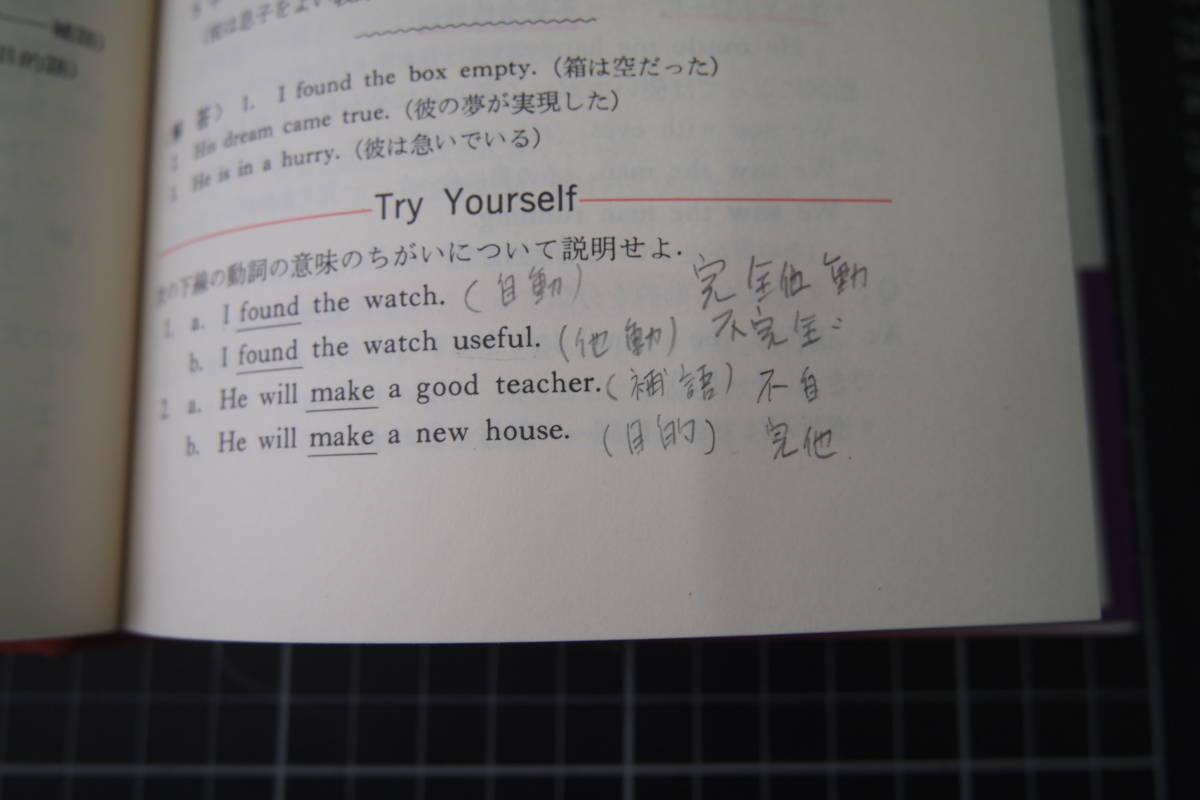 (彼は息子を
解答) 1. I found the box empty. (箱は空だった)
2. His dream came true. (彼の夢が実現した)
3. He is in a hurry. (彼は急いでいる)
Try Yourself
次の下線の動詞の意味のちがいについて説明せよ.
1. a. I found the watch. (自動) 完全他動
b. I found the watch useful. (他動) 不完全〃
2. a. He will make a good teacher. (補語) 不自
b. He will make a new house. (目的) 完他